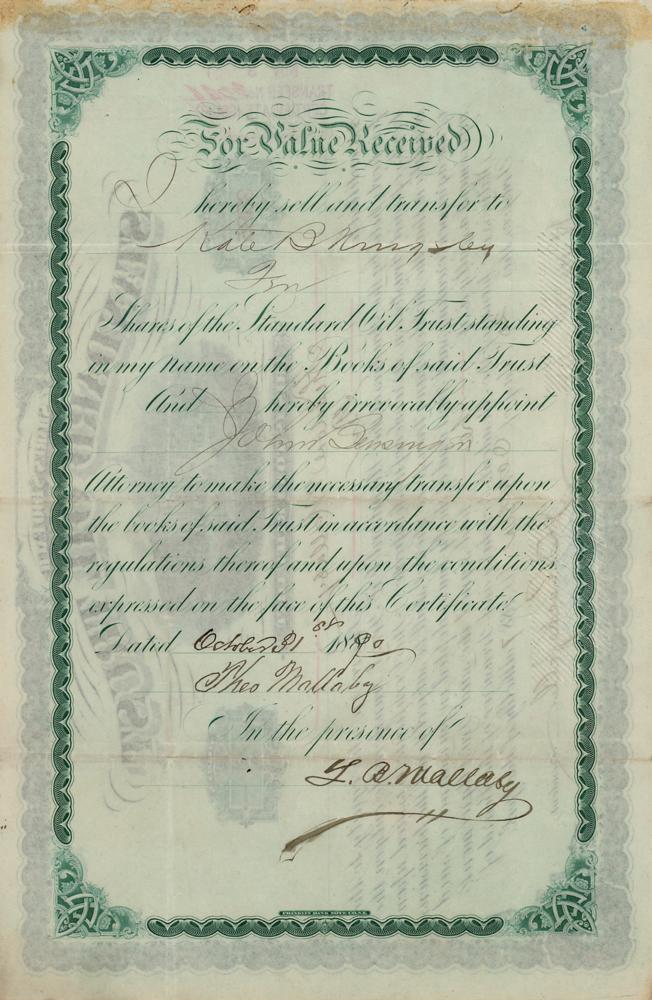 For Value Received
I hereby sell and transfer to
Kate B Kingsley
Ten
Shares of the Standard Oil Trust standing
in my name on the Books of said Trust
And I hereby irrevocably appoint
John Bensinger
Attorney to make the necessary transfer upon
the books of said Trust in accordance with the
regulations thereof and upon the conditions
expressed on the face of this Certificate
Dated October 31st 1890
Theo Mallaby
In the presence of
T. B. Mallaby
FRANKLIN BANK NOTE CO. N.Y.